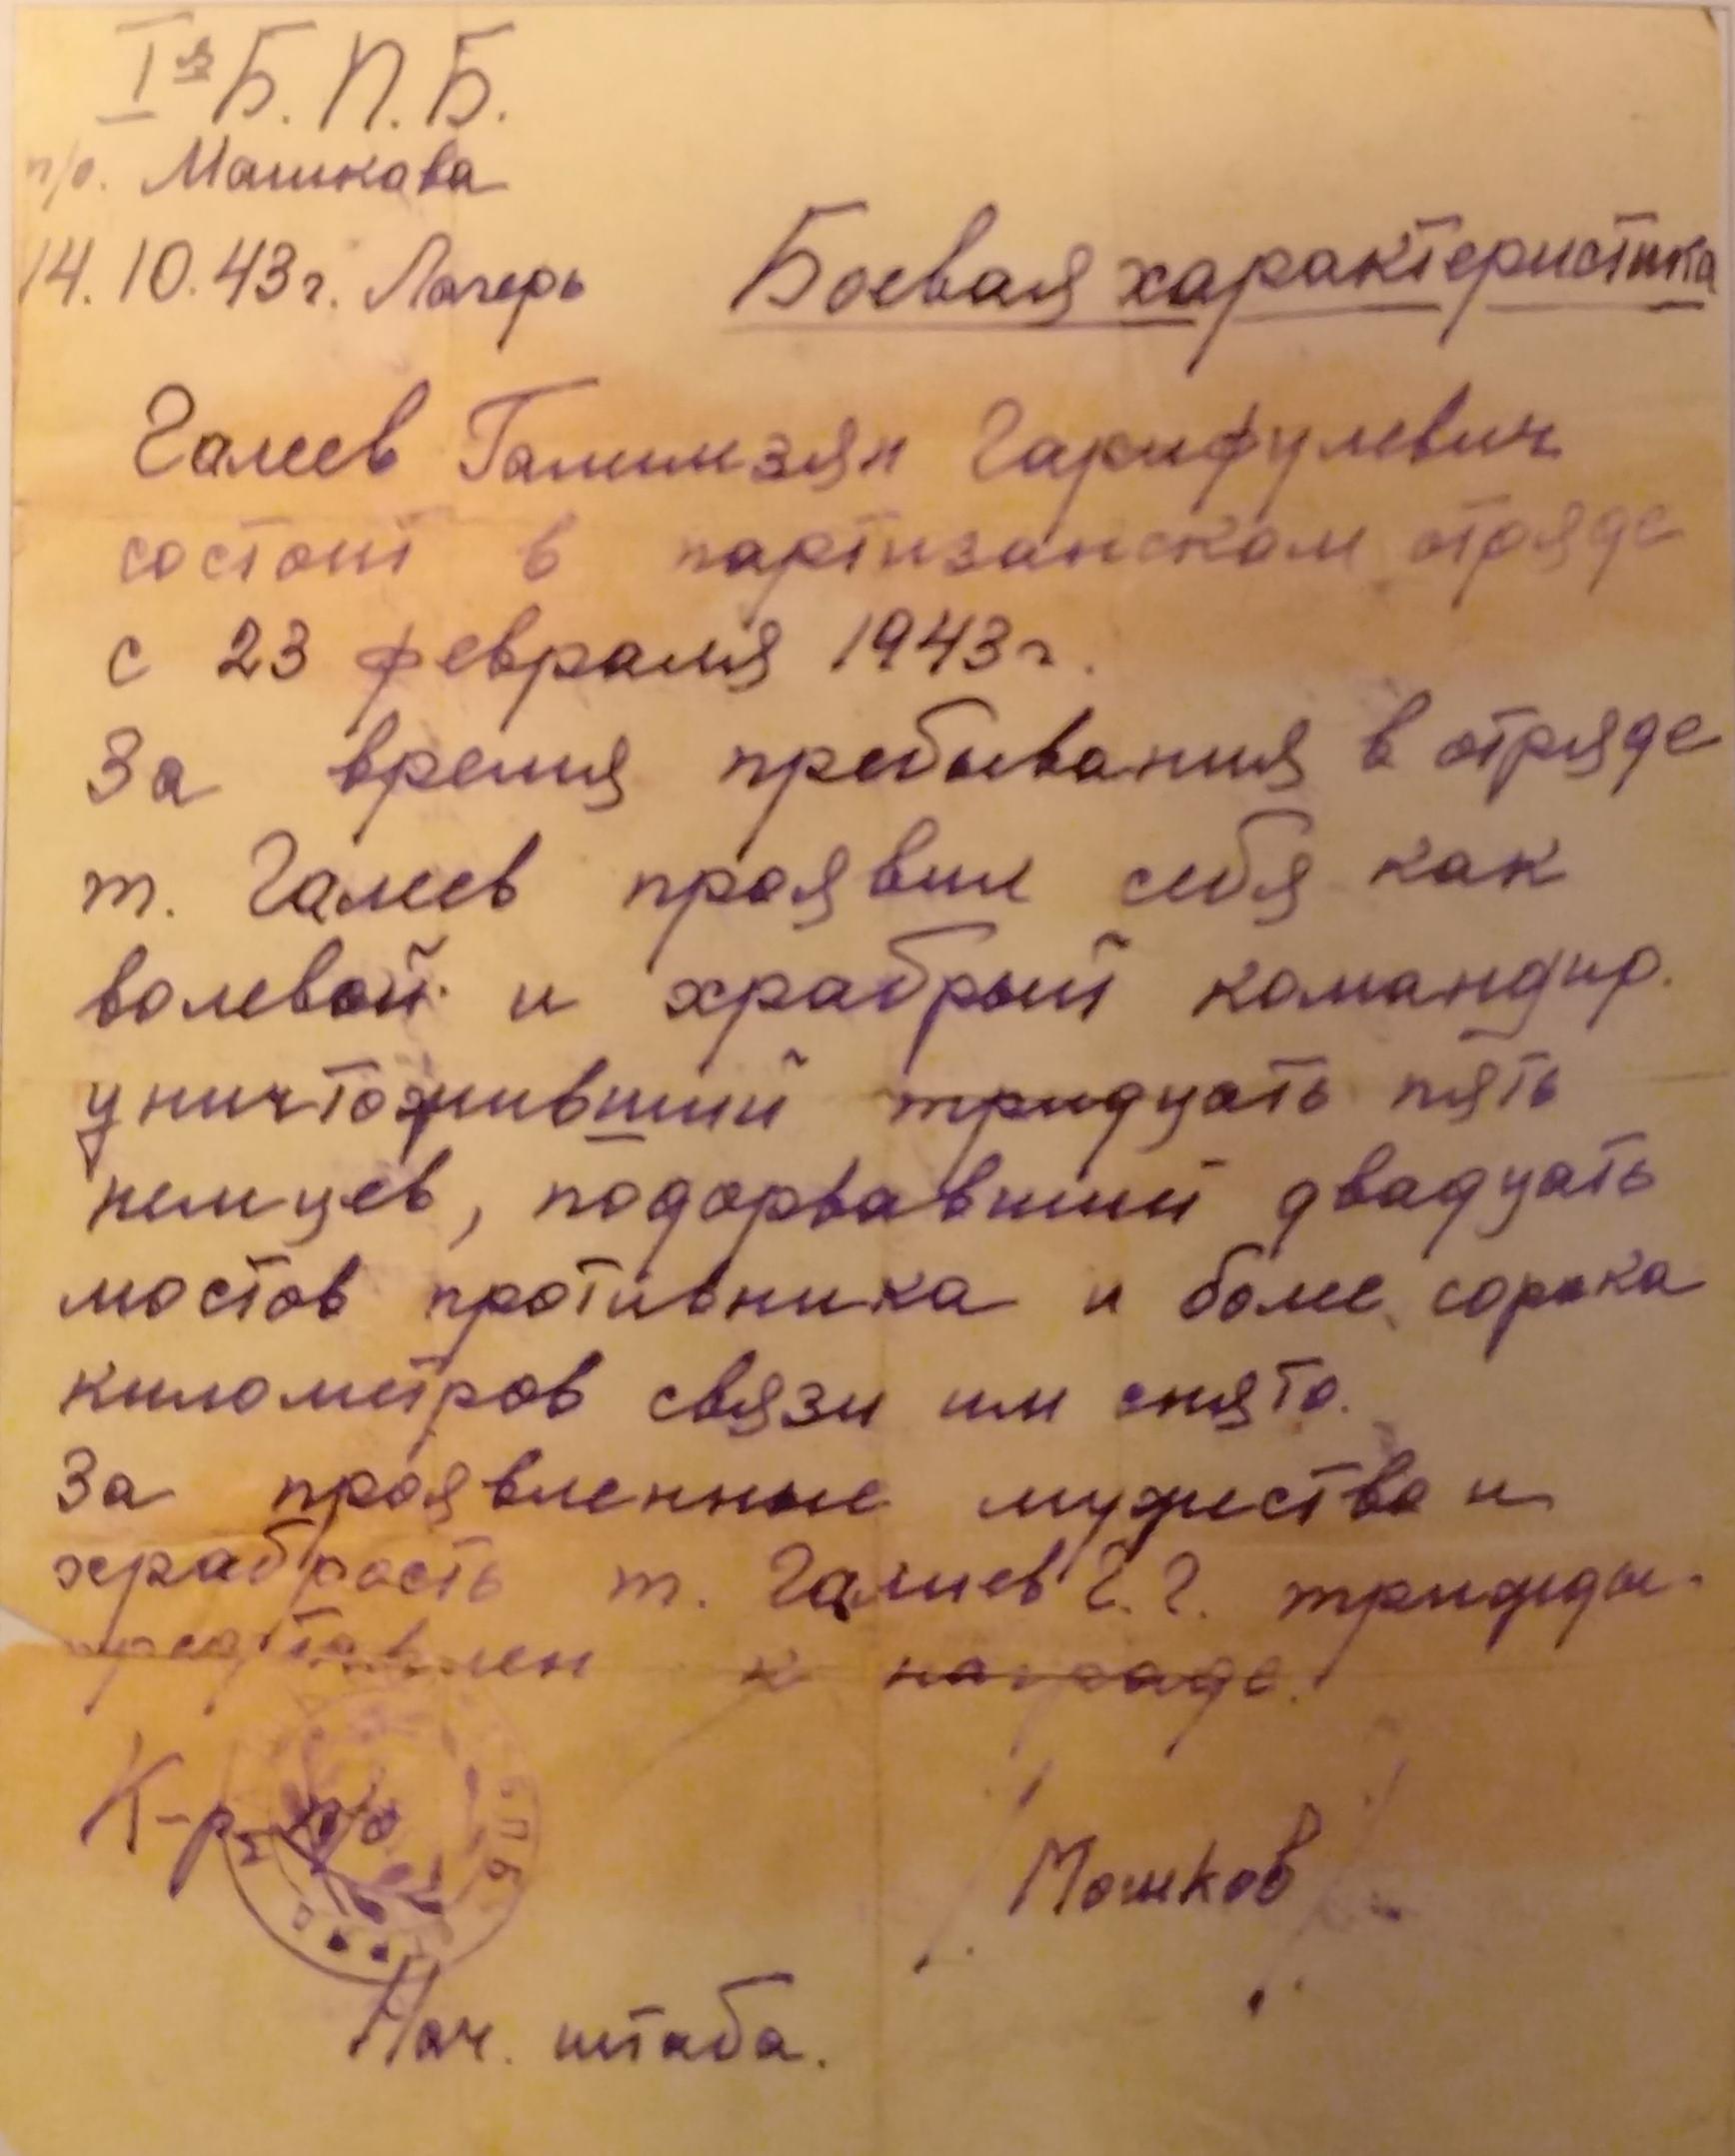 Iя Б.П.Б.
п/о. Машкова
14.10.43г. Лагерь
Боевая характеристика
Галеев Галимзян Гарифулевич
состоит в партизанском отряде
с 23 февраля 1943г.
За время пребывания в отряде
т. Галеев проявил себя как
волевой и храбрый командир.
уничтоживший тридцать пять
немцев, подорвавший двадцать
мостов противника и более сорока
километров связи им снято.
За проявленные мужество и
храбрость т. Галиев Г.Г. трижды
представлен к награде.
К-р п/о / Машков /
БПБ
Нач. штаба.